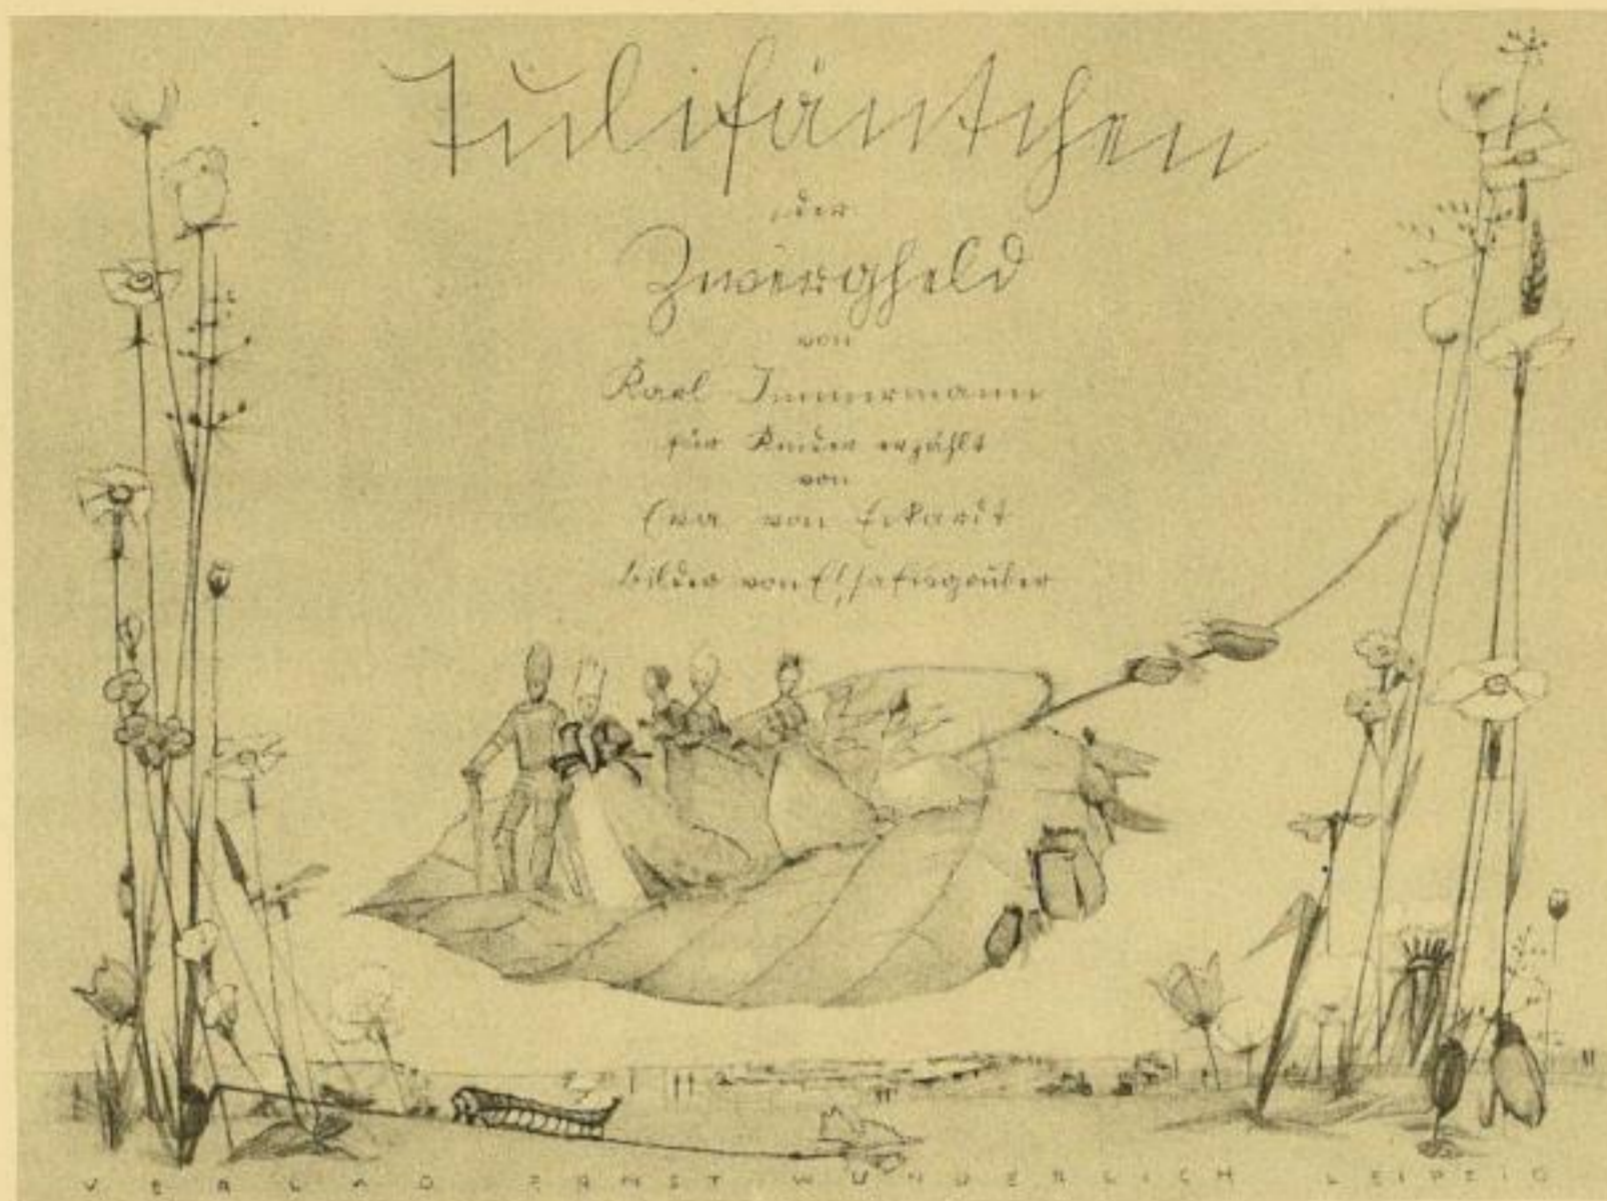 Tulifäntchen
oder
Zwergheld
von
Karl Immermann
für Kinder erzählt
von
Eva von Eckardt
bilder von Elsa Eisgruber
VERLAG ERNST WUNDERLICH LEIPZIG